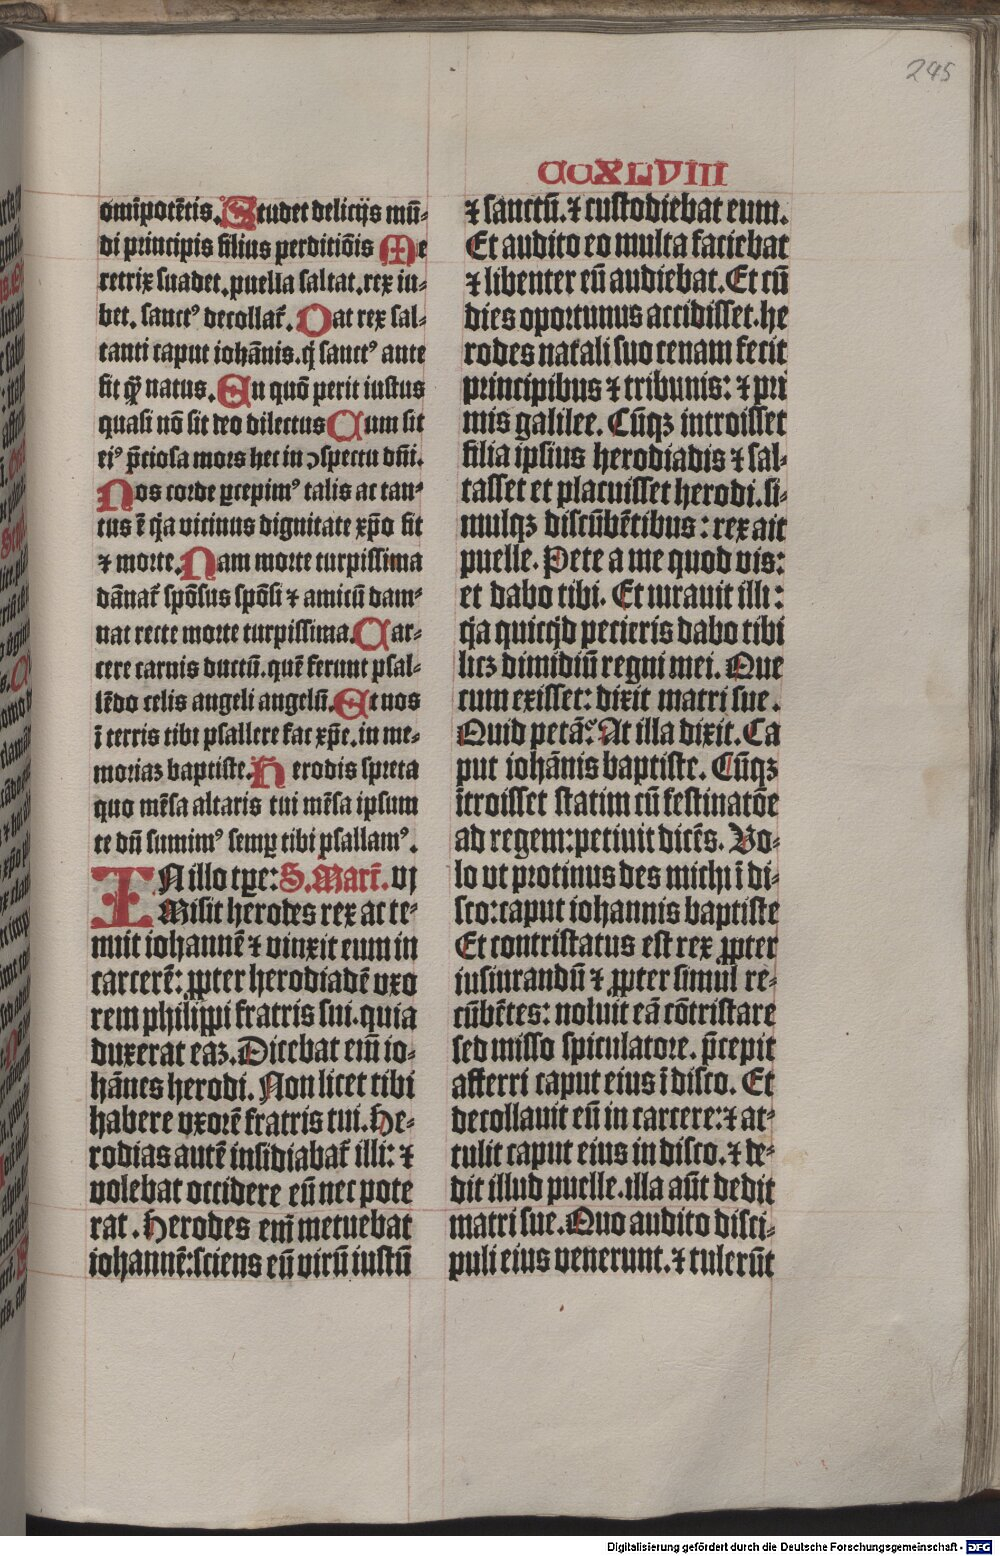 245
CCXLVIII
om̄ipotētis. Studet delicijs mū-
di principis filius perditiōis Me
retrix suadet. puella saltat. rex iu-
bet. sanct⁹ decollat̄. Dat rex sal-
tanti caput iohānis. q̄ sanct⁹ ante
fit q̄ȝ natus. En quō perit iustus
quasi nō sit deo dilectus Cum sit
ei⁹ p̄ciosa mors hec in ↄspectu dn̄i.
Nos corde ꝑcepim⁹ talis ac tan-
tus ē q̄a vicinus dignitate xp̄o fit
⁊ morte. Nam morte turpissima
dānat̄ spōsus spōsi ⁊ amicū dam-
nat recte morte turpissima. Car-
cere carnis ductū. quē ferunt psal-
lēdo celis angeli angelū. Et nos
ī terris tibi psallere fac xp̄e. in me-
moriaꝫ baptiste. Herodis spreta
quo mēsa altaris tui mēsa ipsum
te dn̄ sumim⁹ semꝑ tibi psallam⁹.
IN illo tꝑe: S. Marc̄. vj
Misit herodes rex ac te-
nuit iohannē ⁊ vinxit eum in
carcerē: ꝓpter herodiadē vxo
rem philippi fratris sui. quia
duxerat eaꝫ. Dicebat em̄ io-
hānes herodi. Non licet tibi
habere vxorē fratris tui. He-
rodias autē insidiabat̄ illi: ⁊
volebat occidere eū nec pote
rat. Herodes em̄ metuebat
iohannē: sciens eū virū iustū
⁊ sanctū. ⁊ custodiebat eum.
Et audito eo multa faciebat
⁊ libenter eū audiebat. Et cū
dies oportunus accidisset. he
rodes natali suo cenam fecit
principibus ⁊ tribunis: ⁊ pri
mis galilee. Cūqꝫ introisset
filia ipsius herodiadis ⁊ sal-
tasset et placuisset herodi. si-
mulqꝫ discūbētibus: rex ait
puelle. Pete a me quod vis:
et dabo tibi. Et iurauit illi:
q̄a quicq̄d pecieris dabo tibi
licꝫ dimidiū regni mei. Que
cum exisset: dixit matri sue.
Quid petā? At illa dixit. Ca
put iohānis baptiste. Cūqꝫ
ītroisset statim cū festinatōe
ad regem: petiuit dicēs. Vo-
lo vt protinus des michi ī di-
sco: caput iohannis baptiste
Et contristatus est rex ꝓpter
iusiurandū ⁊ ꝓpter simul re-
cūbētes: noluit eā cōtristare
sed misso spiculatore. p̄cepit
afferri caput eius ī disco. Et
decollauit eū in carcere: ⁊ at-
tulit caput eius in disco. ⁊ de-
dit illud puelle. illa aūt dedit
matri sue. Quo audito disci-
puli eius venerunt. ⁊ tulerūt
Digitalisierung gefördert durch die Deutsche Forschungsgemeinschaft - DFG